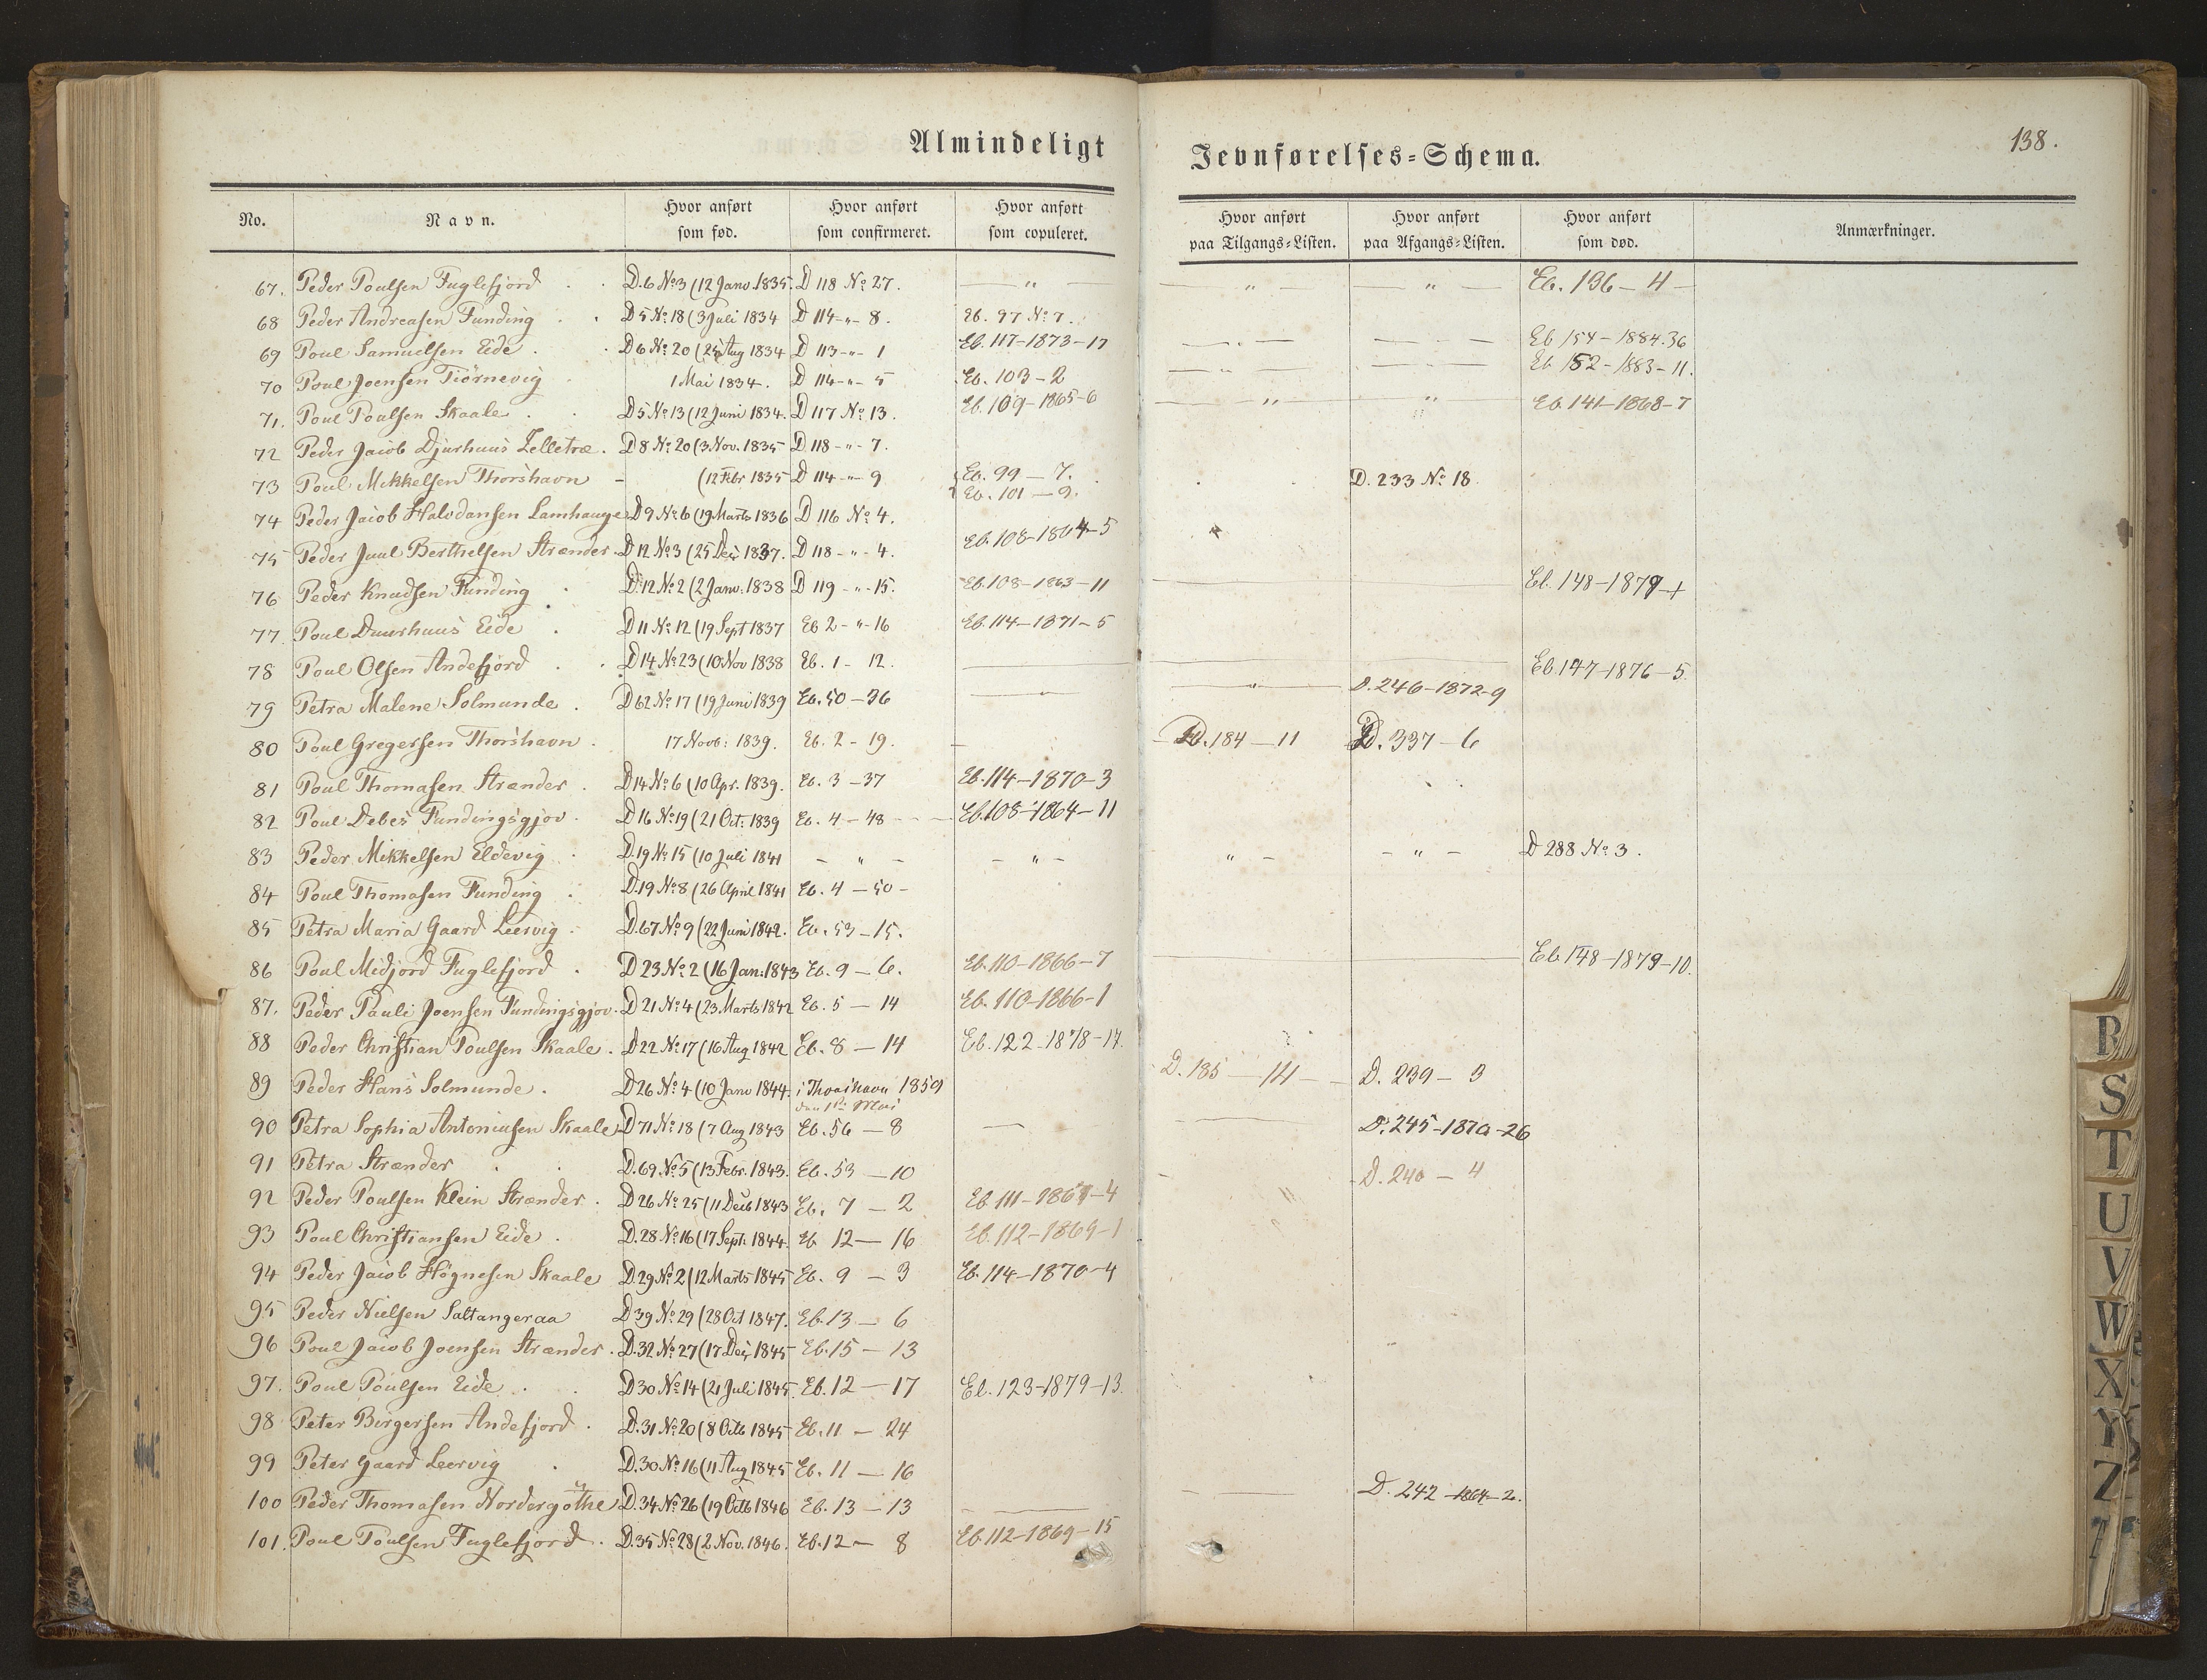 Almindeligt Jevnførelses=Schema.
138.
No. Navn. Hvor anført som fød. Hvor anført som confirmeret. Hvor anført som copuleret. Hvor anført paa Tilgangs=Listen. Hvor anført paa Afgangs=Listen. Hvor anført som død. Anmærkninger.
67. Peder Poulsen Fuglefjord . . D.6 No 3 (12 Janv. 1835. D 118 No 27. — " — — " — — " — Eb. 136 — 4 —
68 Peder Andreasen Funding . . D 5 No 18 (3 Juli 1834 D 114 - " - 8. Eb. 97 No 7.
69 Poul Samuelsen Eide . . D 6 No 20 (25 Aug 1834 D 113 - " - 1 Eb. 117-1873-17 Eb 154-1884.36
70 Poul Joensen Tiörnevig 1 Mai 1834. D 114 - " - 5 Eb. 103-2 Eb 152-1883-11.
71. Poul Poulsen Skaale . . D 5 No 13 (12 Juni 1834. D 117 No 13. Eb. 109-1865-6 — " — " Eb. 141-1868-7
72 Peder Jacob Djurhuus Zelletræ. D 8 No 20 (3 Nov. 1835 D 118 - " - 7.
73 Poul Mikkelsen Thorshavn - (12 Febr 1835 D 114 - " - 9 Eb. 99 — 7. D. 233 No 18.
Eb. 101 — 9.
74 Peder Jacob Halvdansen Lamhauge D 9 No 6 (19 Marts 1836 D 116 No 4.
75 Peder Juul Berthelsen Strænder. D 12 No 3 (25 Dec 1837. D 118 - " - 4. Eb. 108-1864-5
76 Peder Knudsen Funding . D. 12 No 2 (2 Janv. 1838 D 119 - " - 15. Eb. 108-1863-11 Eb. 148-1879-
77. Poul Duurhuus Eide . D 11 No 12 (19 Sept 1837 Eb 2 - " - 16 Eb. 114-1871-5
78 Poul Olsen Andefjord . . D 14 No 23 (10 Nov 1838 Eb. 1 - 12. Eb. 147-1876-5.
79 Petra Malene Solmunde . D 62 No 17 (19 Juni 1839 Eb. 50 — 36 D. 246-1872-9
80 Poul Gregersen Thorshavn . 17 Novb: 1839. Eb. 2 - 19. D. 184 — 11 D. 337 - 6
81 Poul Thomasen Strænder . D 14 No 6 (10 Apr. 1839. Eb. 3 — 37 Eb. 114-1870-3
82 Poul Debes Fundingsgjov . D 16 No 19 (21 Oct: 1839 Eb. 4 — 48 Eb. 108-1864-11
83 Peder Mikkelsen Eldevig . D. 19 No 15 (10 Juli 1841 - " - - " - " - - " - D 288 No 3.
84 Poul Thomasen Funding . D. 19 No 8 (26 April 1841 Eb. 4 — 50 -
85 Petra Maria Gaard Leervig . D. 67 No 9 (22 Juni 1842. Eb. 53 — 15.
86 Poul Midjord Fuglefjord . D 23 No 2 (16 Jan: 1843 Eb. 9 — 6. Eb. 110-1866-7 Eb. 148-1879-10.
87. Peder Pauli Joensen Fundingsgjov. D 21 No 4 (23 Marts 1842 Eb. 5 — 14 Eb. 110-1866-1
88 Peder Christian Poulsen Skaale . D 22 No 17 (16 Aug 1842 Eb. 8 — 14 Eb. 122-1878-17.
89 Peder Hans Solmunde . D 26 No 4 (10 Janv 1844. i Thorshavn 1859 D. 185 — 14 D. 239 - 3
den 1ste Mai
90 Petra Sophia Antoniusen Skaale D 71 No 18 (7 Aug 1843 Eb. 56 — 8 D. 245-1870-26
91 Petra Strænder . . D. 69 No 5 (13 Febr. 1843. Eb. 53 — 10 D. 240 - 4
92 Peder Poulsen Klein Strænder . D 26 No 25 (11 Decb 1843 Eb. 7 — 2 Eb 111-1867-4
93 Poul Christiansen Eide . D. 28 No 16 (17 Sept. 1844. Eb 12 — 16 Eb. 112-1869-1
94 Peder Jacob Högnesen Skaale D. 29 No 2 (12 Marts 1845 Eb. 9 — 3 Eb. 114-1870-4
95 Peder Nielsen Saltangeraa D 39 No 29 (28 Oct 1847. Eb. 13 — 6
96 Poul Jacob Joensen Strænder . D. 32 No 27 (17 Dec 1845 Eb. 15 — 13
97. Poul Poulsen Eide . . D 30 No 14 (21 Juli 1845. Eb. 12 — 17 Eb. 123-1879-13.
98 Peter Birgersen Andefjord . D. 31 No 20 (8 Octb 1845 Eb. 11 — 24
99 Peter Gaard Leervig . D. 30 No 16 (11 Aug 1845 Eb. 11 — 16
100 Peder Thomasen Nordergöthe D. 34 No 26 (19 Octb 1846 Eb. 13 — 13 D. 242-1864-2.
101. Poul Poulsen Fuglefjord . D. 35 No 28 (2 Nov. 1846. Eb. 12 — 8 Eb. 112-1869-15
R
S
T
U
V
W
X
Y
Z